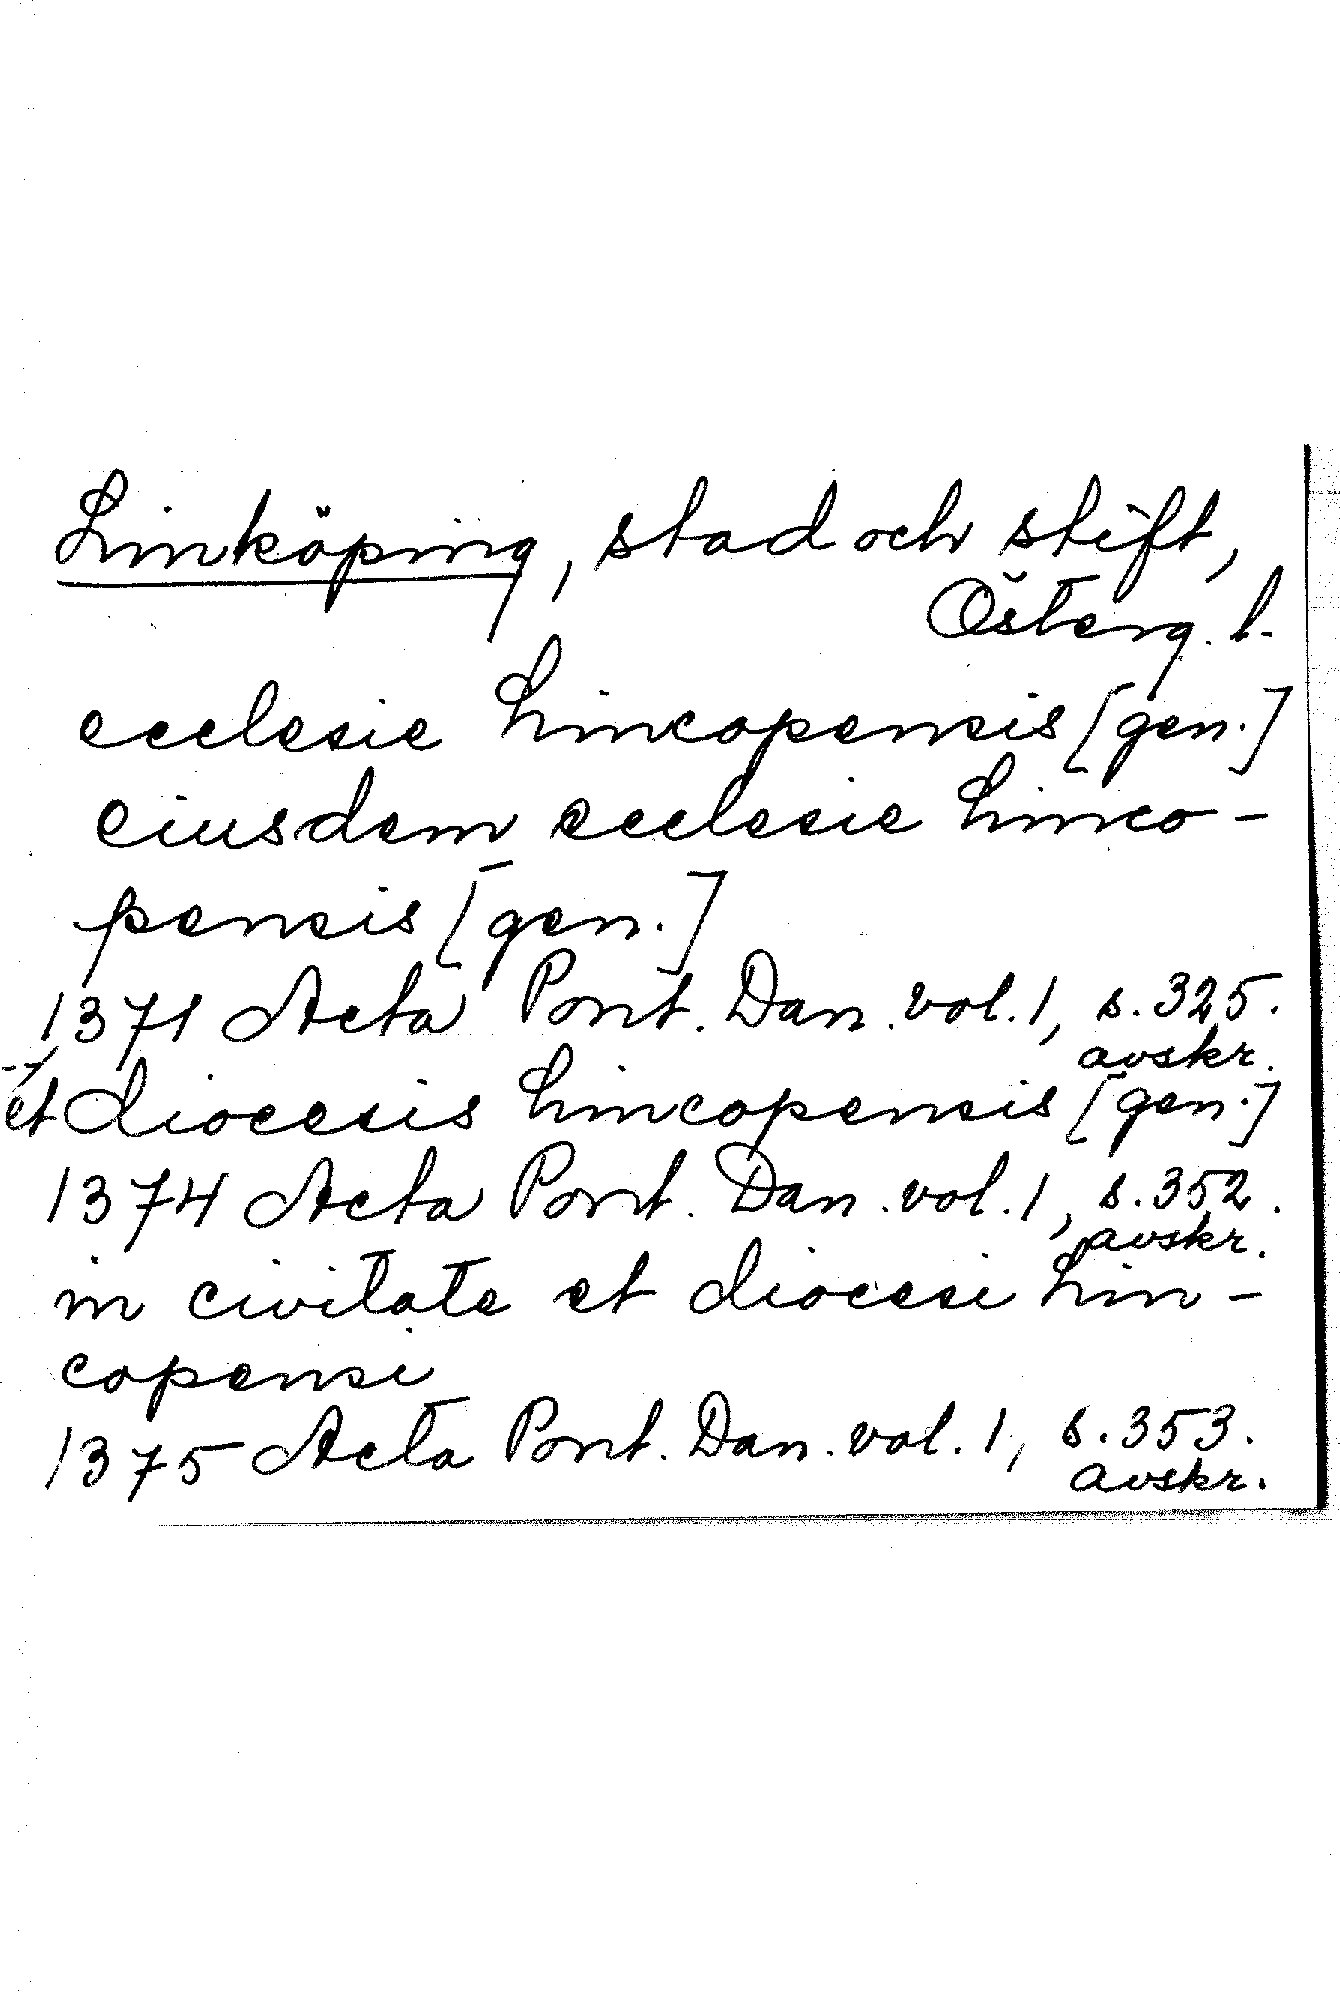 Linköping, stad och stift,
Österg. l.
ecclesie Lincopensis [gen.]
eiusdem ecclesie Linco-
pensis [gen.]
1371 Acta Pont. Dan. vol. 1, s. 325.
avskr.
et diocesis Lincopensis [gen.]
1374 Acta Pont. Dan. vol. 1, s. 352.
avskr.
in civitate et diocesi Lin-
copensi
1375 Acta Pont. Dan. vol. 1, s. 353.
avskr.